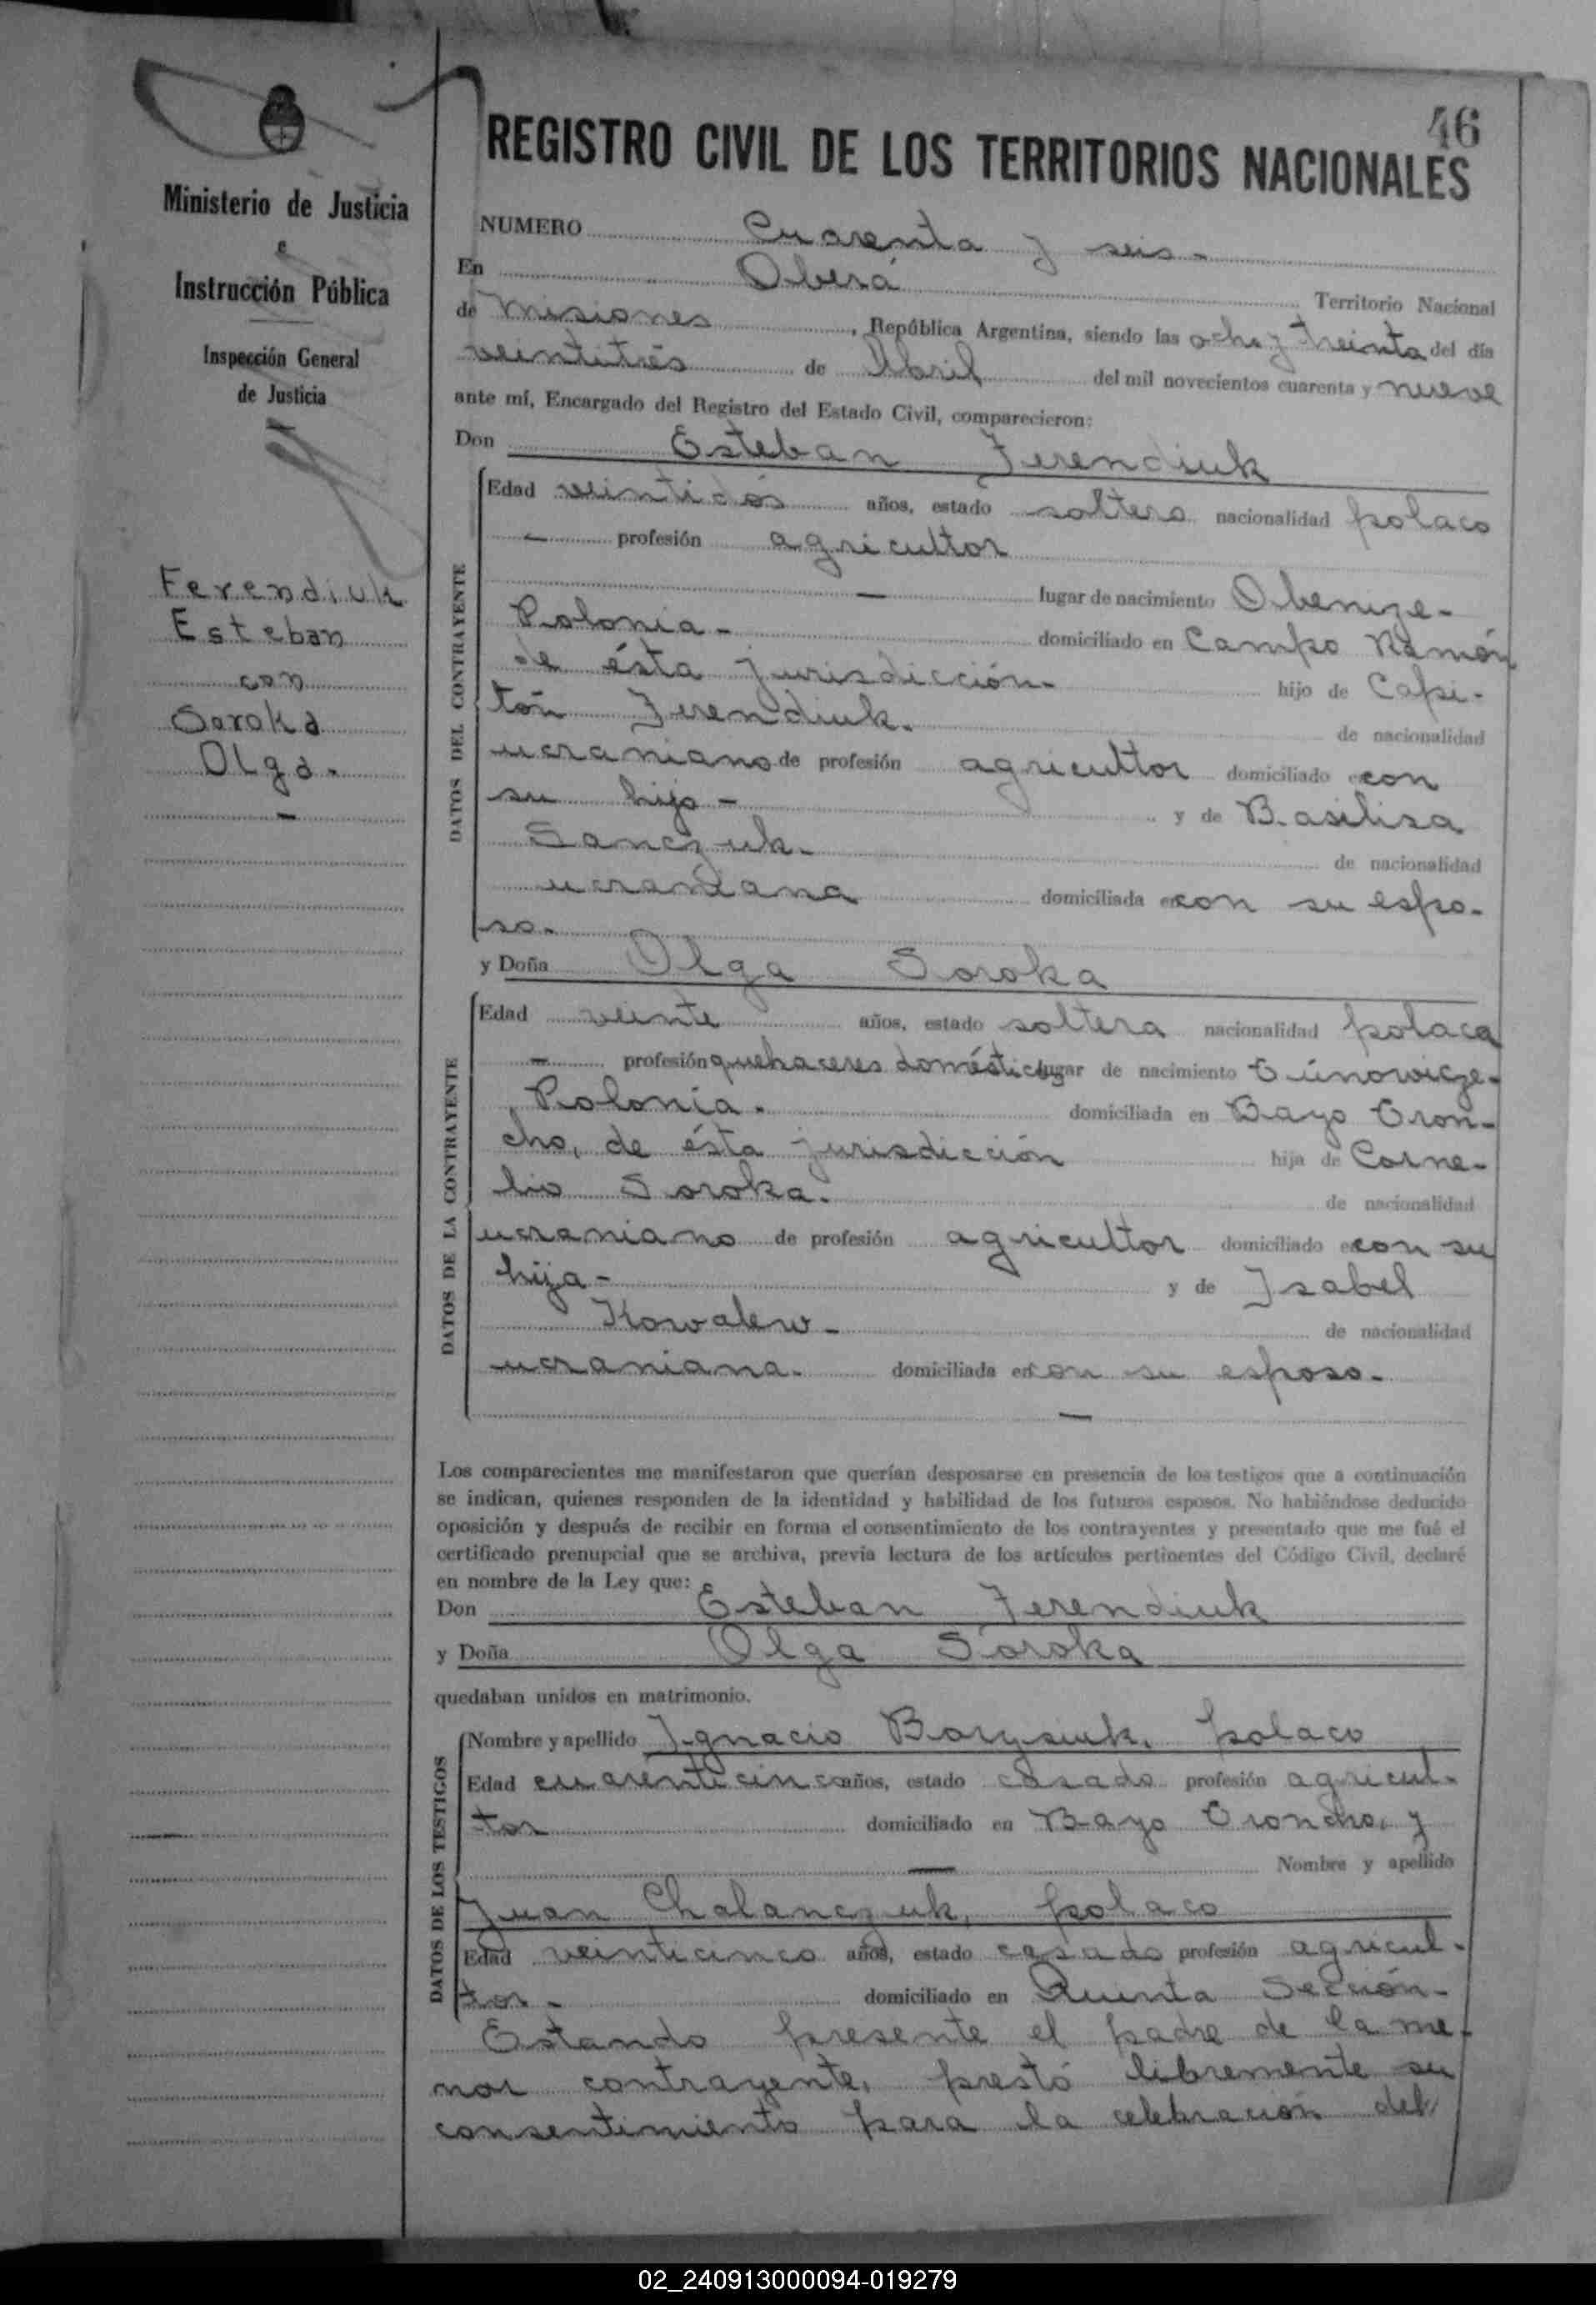 46
REGISTRO CIVIL DE LOS TERRITORIOS NACIONALES
Ministerio de Justicia
e
Instrucción Pública
Inspección General
de Justicia
Ferendiuk
Esteban
con
Soroka
Olga.-
NUMERO Cuarenta y seis.-
En Oberá Territorio Nacional
de Misiones, República Argentina, siendo las ocho y treinta del día
veintitrés de Abril del mil novecientos cuarenta y nueve
ante mí, Encargado del Registro del Estado Civil, comparecieron:
Don Esteban Ferendiuk
DATOS DEL CONTRAYENTE
Edad veintidós años, estado soltero nacionalidad polaco
- profesión agricultor
- lugar de nacimiento Obenize-
Polonia.- domiciliado en Campo Ramón
de ésta jurisdicción.- hijo de Capi-
tón Ferendiuk. de nacionalidad
ucraniano de profesión agricultor domiciliado con
su hijo - y de Basilisa
Sanczuk.- de nacionalidad
ucraniana domiciliada con su espo-
so.-
y Doña Olga Soroka
DATOS DE LA CONTRAYENTE
Edad veinte años, estado soltera nacionalidad polaca
- profesión quehaceres domésticos lugar de nacimiento
Polonia.- domiciliada en Bayo Tron-
cho, de ésta jurisdicción hija de Corne-
lio Soroka. de nacionalidad
ucraniano de profesión agricultor domiciliado con su
hija - y de Isabel
Kowalew.- de nacionalidad
ucraniana.- domiciliada en con su esposo.-
-
Los comparecientes me manifestaron que querían desposarse en presencia de los testigos que a continuación
se indican, quienes responden de la identidad y habilidad de los futuros esposos. No habiéndose deducido
oposición y después de recibir en forma el consentimiento de los contrayentes y presentado que me fué el
certificado prenupcial que se archiva, previa lectura de los artículos pertinentes del Código Civil, declaré
en nombre de la Ley que:
Don Esteban Ferendiuk
y Doña Olga Soroka
quedaban unidos en matrimonio.
DATOS DE LOS TESTIGOS
Nombre y apellido Ignacio Borysiuk, polaco
Edad cuarenticinco años, estado casado profesión agricul-
tor domiciliado en Bayo Troncho, y
- Nombre y apellido
Juan Chalanczuk, polaco
Edad veinticinco años, estado casado profesión agricul-
tor.- domiciliado en Quinta Sección.-
Estando presente el padre de la me-
nor contrayente, prestó libremente su
consentimiento para la celebración del
02_240913000094-019279